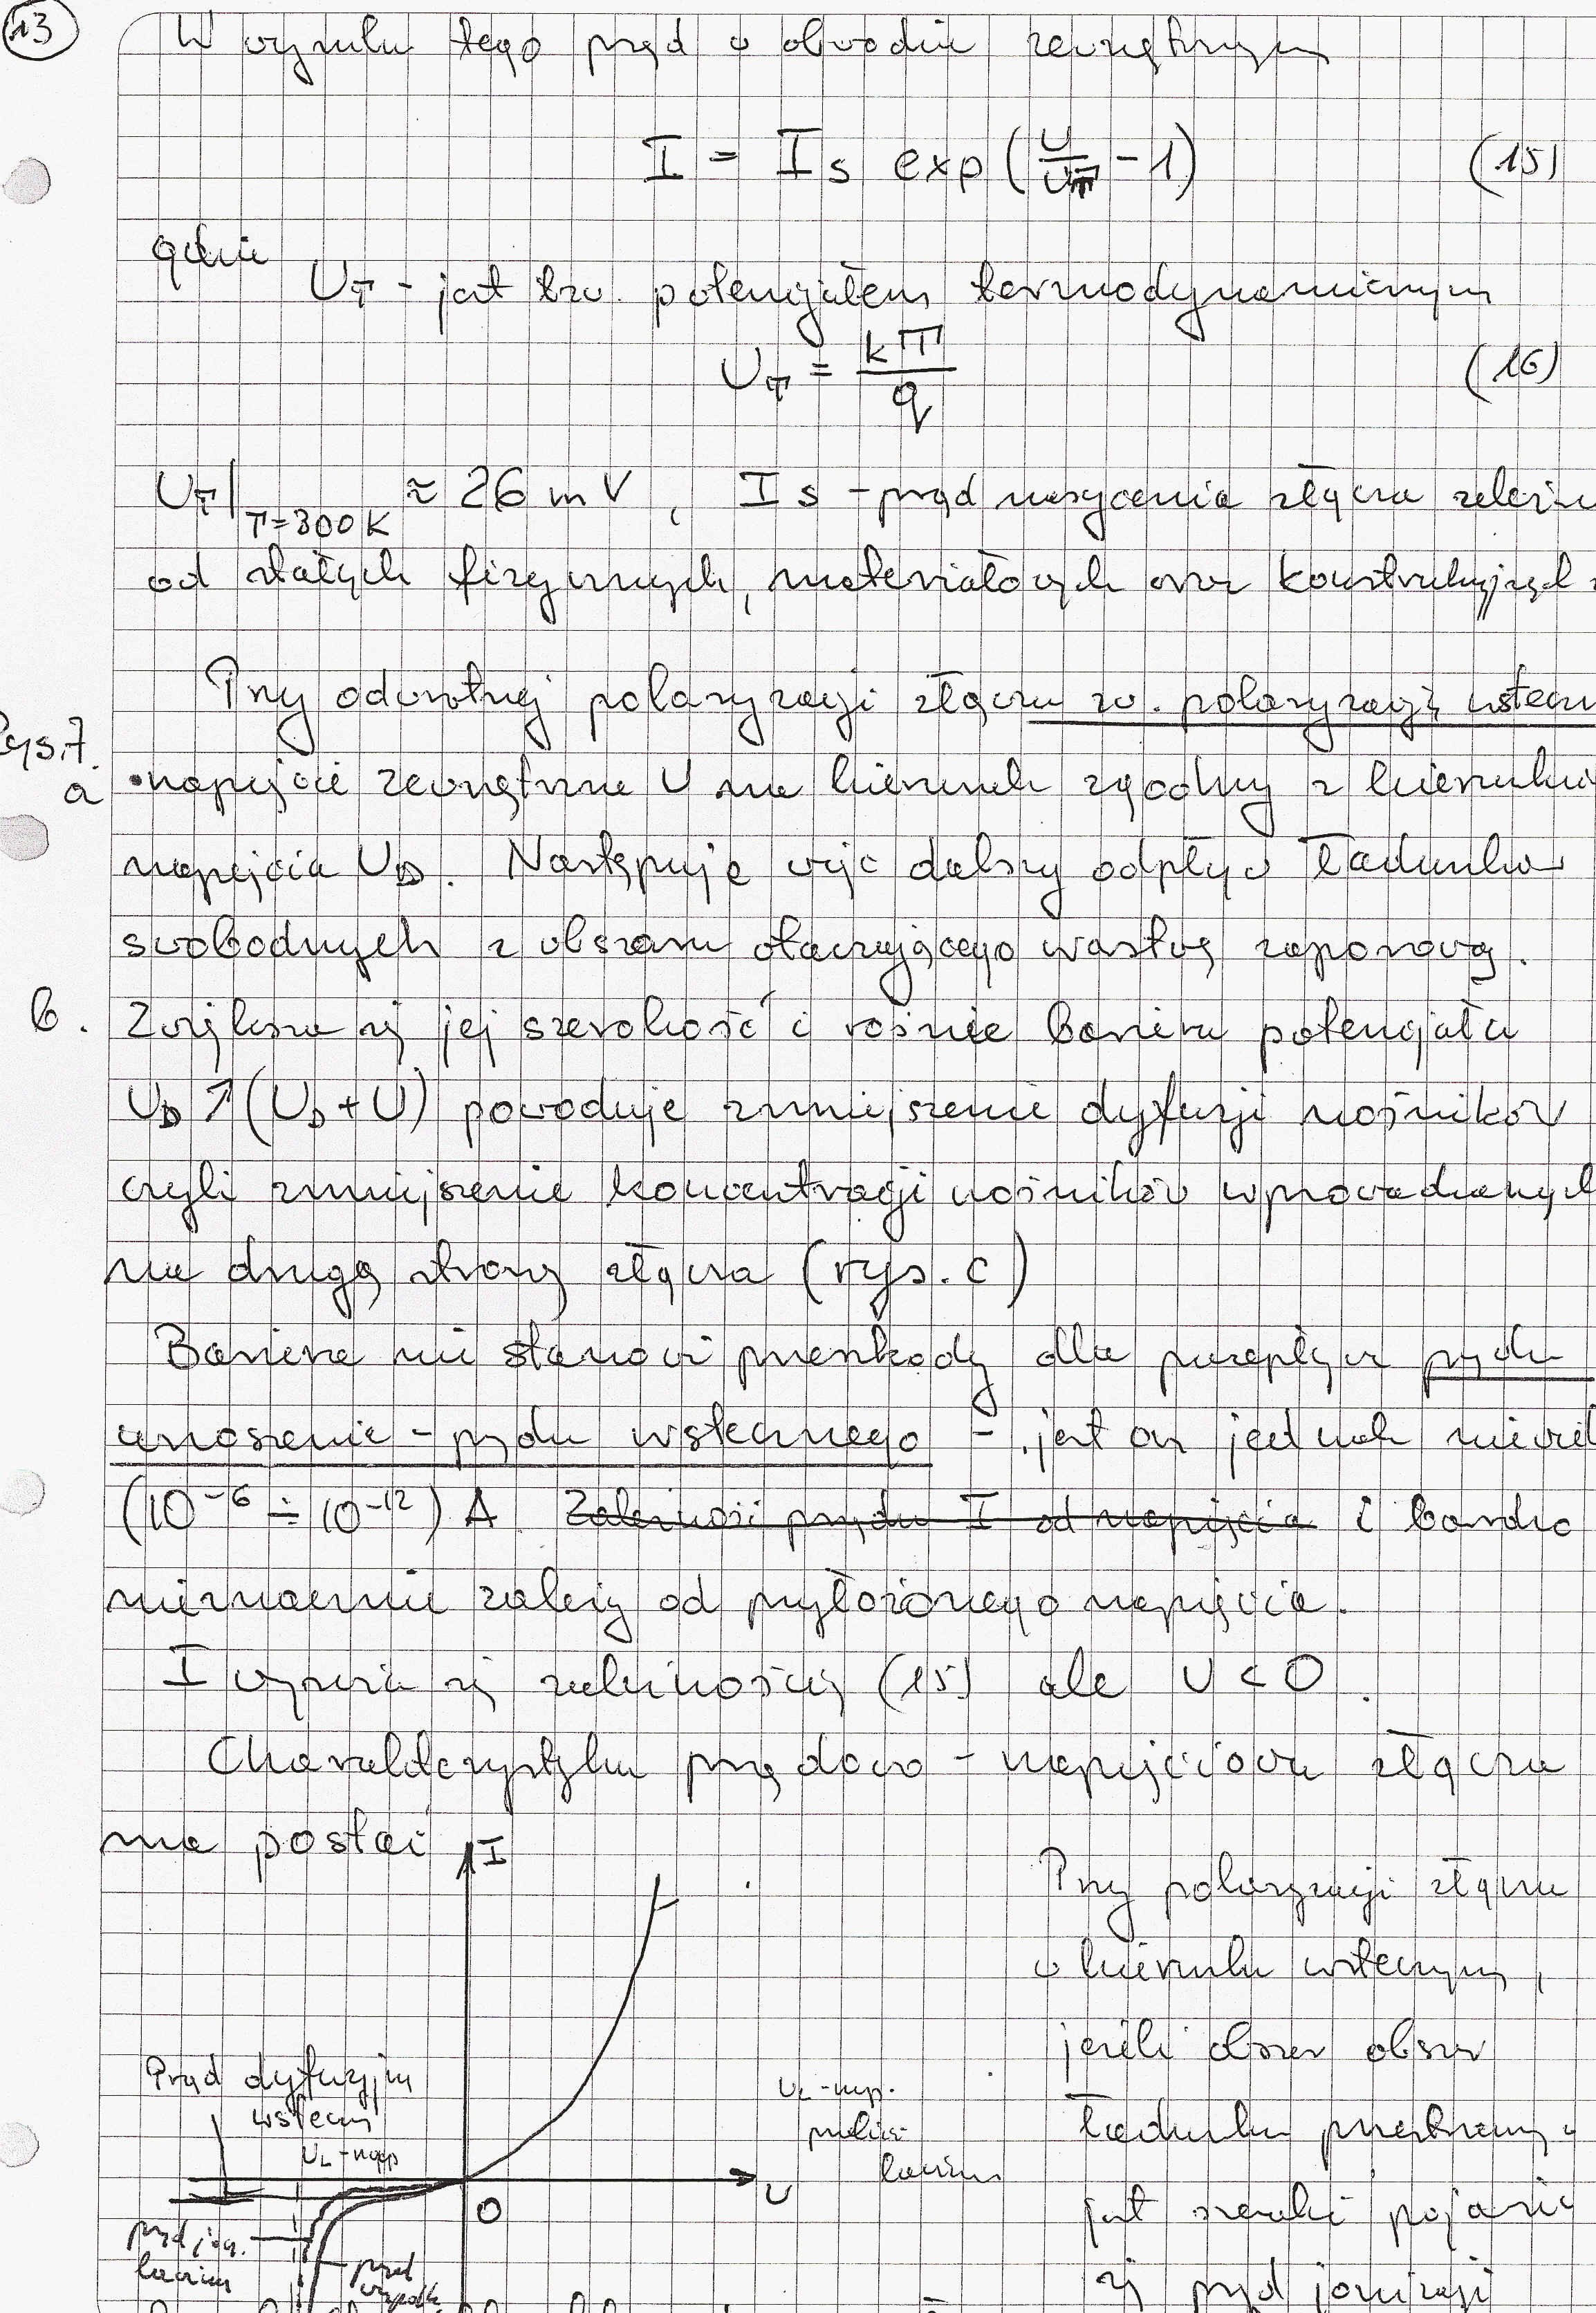 13
W wyniku tego prąd w obwodzie zewnętrznym
I = Is exp(U/UT - 1) (15)
gdzie
UT - jest tzw. potencjałem termodynamicznym
UT = kT/q (16)
UT|T=300K ≈ 26 mV , Is - prąd nasycenia złącza zależny
od stałych fizycznych, materiałowych oraz konstrukcyjnych
Przy odwrotnej polaryzacji złącza zw. polaryzacją wsteczn
Rys.7.
a •napięcie zewnętrzne U ma kierunek zgodny z kierunkiem
napięcia UD. Następuje więc dalszy odpływ ładunków
swobodnych z obszaru otaczającego warstwę zaporową.
b. Zwiększa się jej szerokość i rośnie bariera potencjału
UD ↗ (UD + U) powoduje zmniejszenie dyfuzji nośników
czyli zmniejszenie koncentracji nośników wprowadzanych
na drugą stronę złącza (rys. c)
Bariera nie stanowi przeszkody dla przepływu prądu
unoszenia - prądu wstecznego - jest on jednak niewiel
(10⁻⁶ ÷ 10⁻¹²) A Zależność prądu I od napięcia i bardzo
nieznacznie zależy od przyłożonego napięcia.
I wyraża się zależnością (15) ale U < 0.
Charakterystyka prądowo - napięciowa złącza
ma postać I
Przy polaryzacji złącza
w kierunku wstecznym,
jeżeli obszar
ładunku przestrzenn
jest szeroki pojawia
się prąd jonizacji
Prąd dyfuzyjny
wsteczny
UL - nap
UL - nap.
przebicia
lawin
U
0
prąd jon.
lawin
prąd